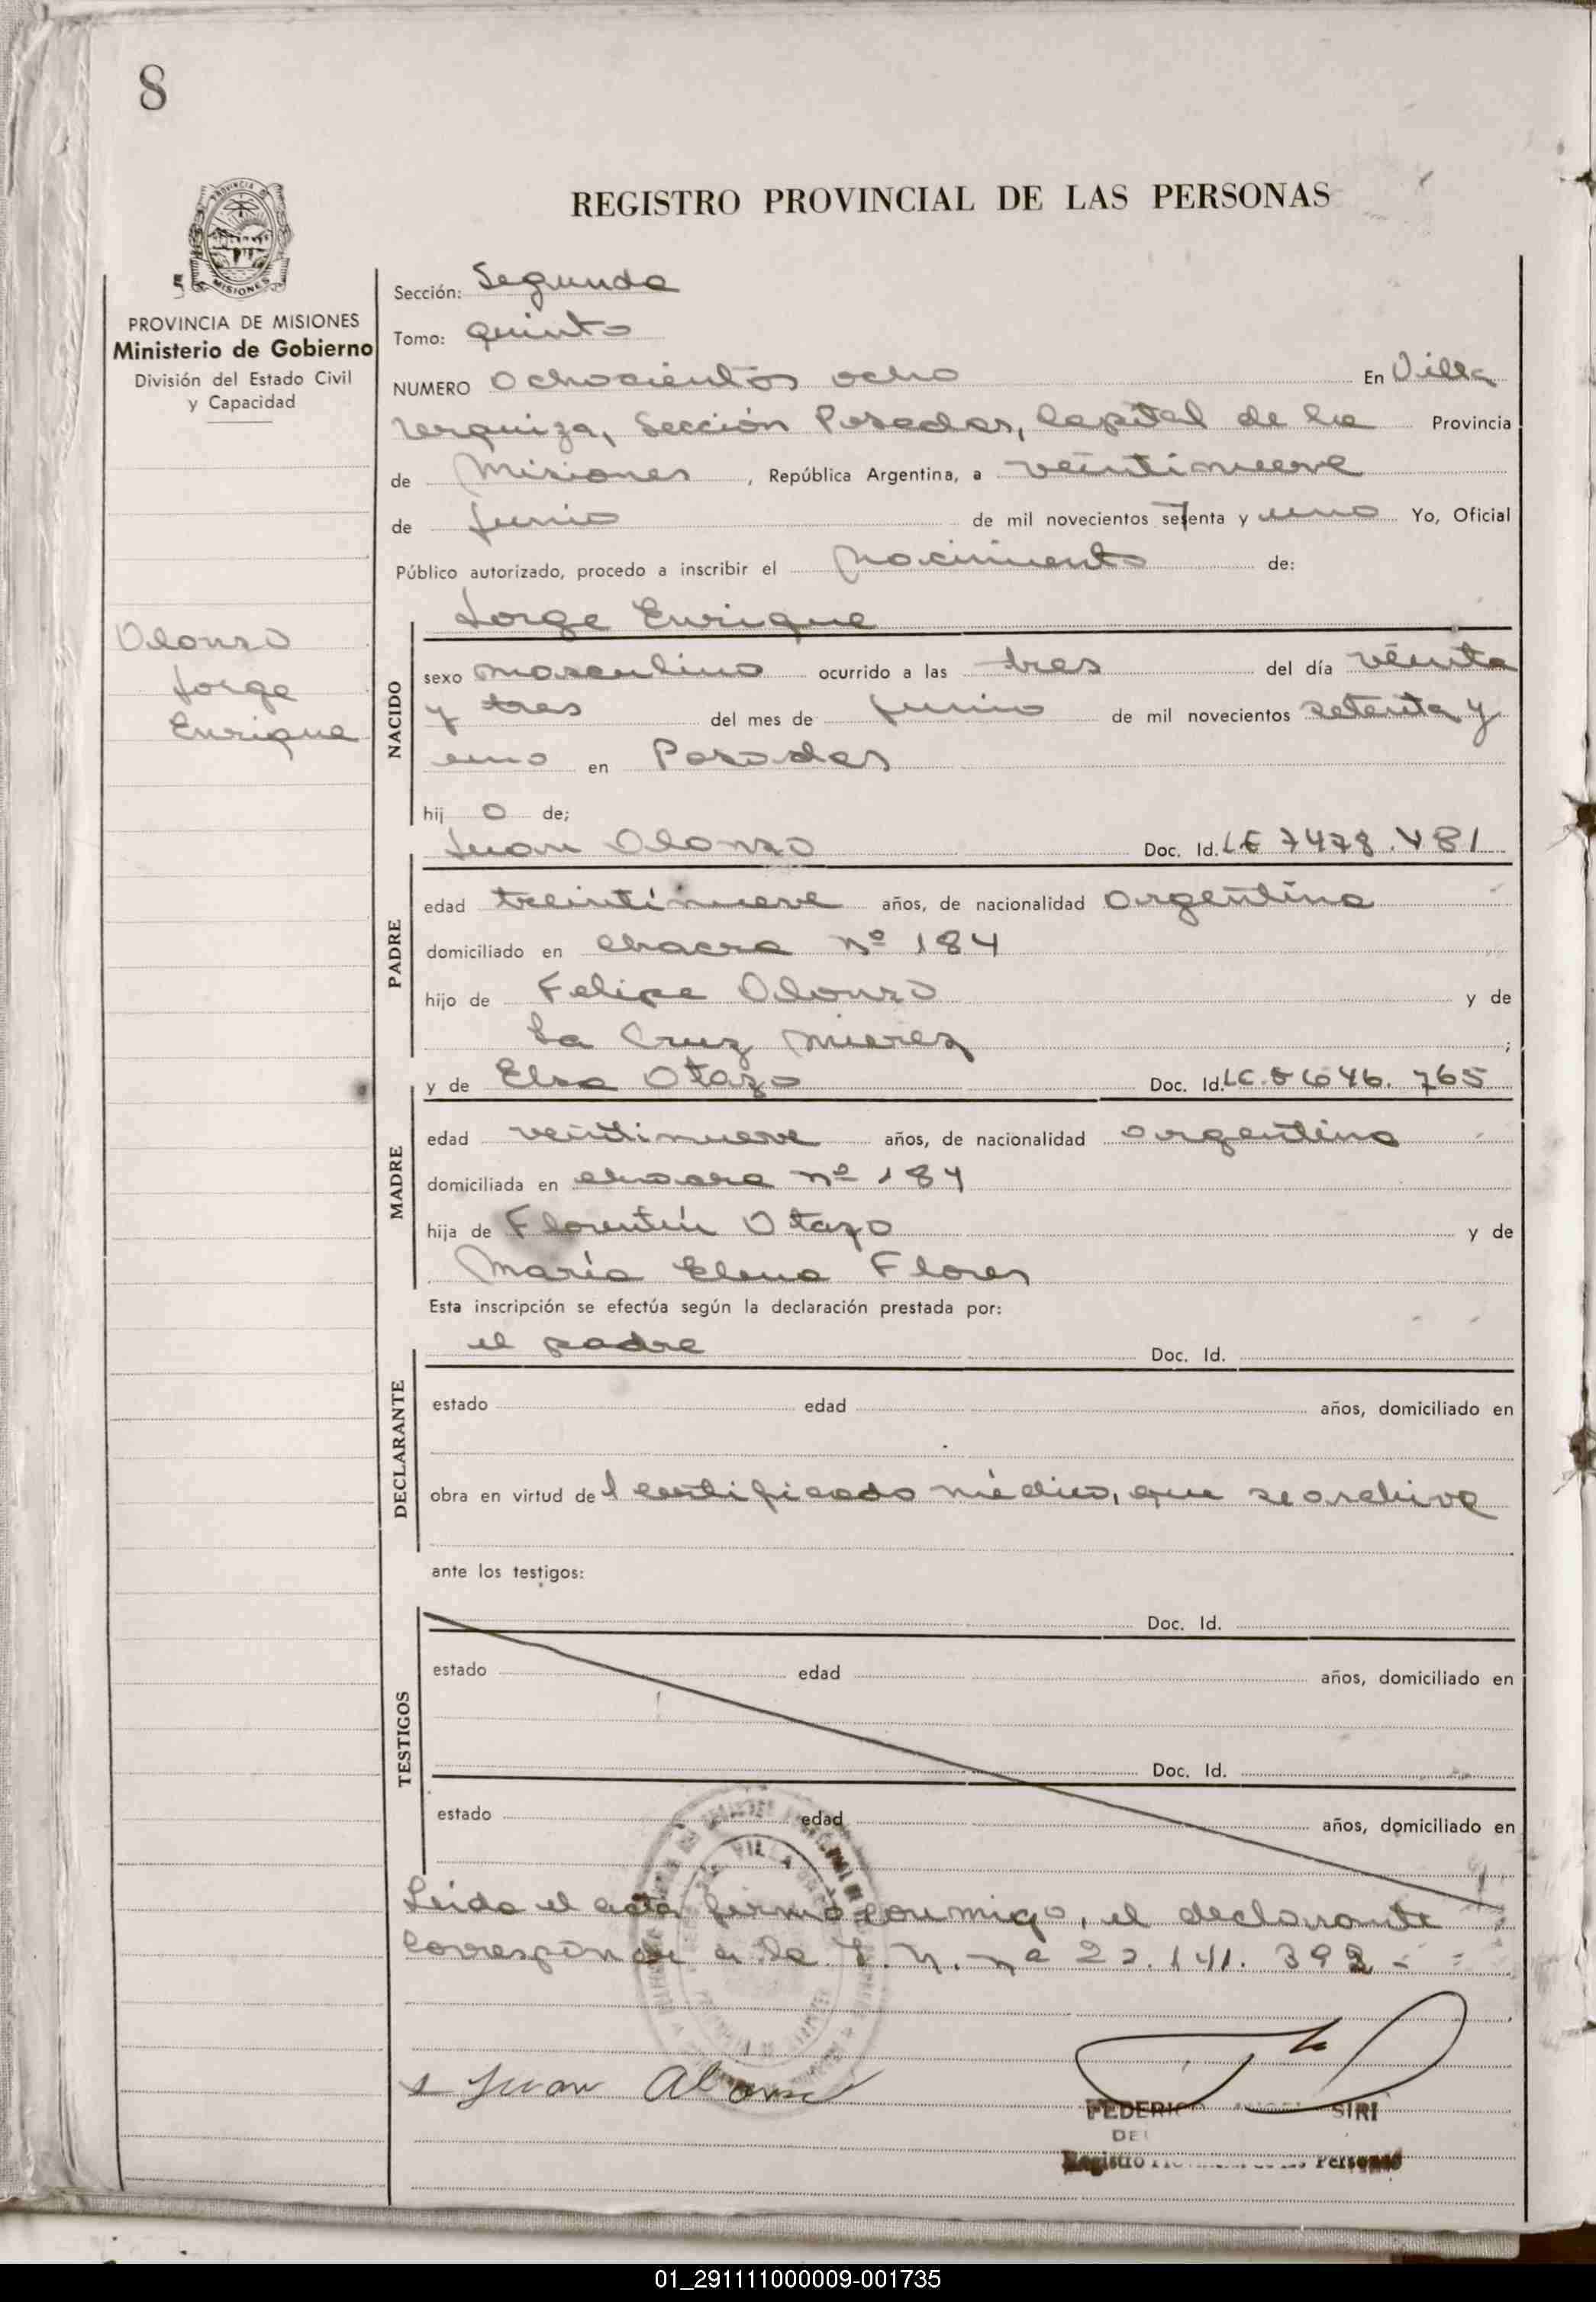 8
REGISTRO PROVINCIAL DE LAS PERSONAS
5
MISIONES
PROVINCIA DE MISIONES
Ministerio de Gobierno
División del Estado Civil
y Capacidad
Sección: Segunda
Tomo: quinto
NUMERO ochocientos ocho En Villa
Urquiza, Sección Posadas, Capital de la Provincia
de Misiones, República Argentina, a veintinueve
de Junio de mil novecientos setenta y uno Yo, Oficial
Público autorizado, procedo a inscribir el nacimiento de:
Jorge Enrique
Alonzo
Jorge
Enrique
NACIDO
sexo masculino ocurrido a las tres del día veinte
y tres del mes de Junio de mil novecientos setenta y
uno en Posadas
hij o de;
Juan Alonzo Doc. Id. LE 7478.481
PADRE
edad treintinueve años, de nacionalidad argentina
domiciliado en chacra nº 184
hijo de Felipe Alonzo y de
La Cruz Mierez ;
y de Elsa Otazo Doc. Id. LC.
MADRE
edad veintinueve años, de nacionalidad argentina
domiciliada en chacra nº 184
hija de Florentín Otazo y de
María Elena Flores
Esta inscripción se efectúa según la declaración prestada por:
el padre Doc. Id.
DECLARANTE
estado edad años, domiciliado en
obra en virtud del certificado médico, que se archiva
ante los testigos:
Doc. Id.
TESTIGOS
estado edad años, domiciliado en
Doc. Id.
estado edad años, domiciliado en
VILLA
Leida el acta, firmó conmigo, el declarante
Corresponde a la nº 22.141.392-
Juan Alonzo
FEDERICO ANGEL SIRI
DEL
Registro Personas
01_291111000009-001735